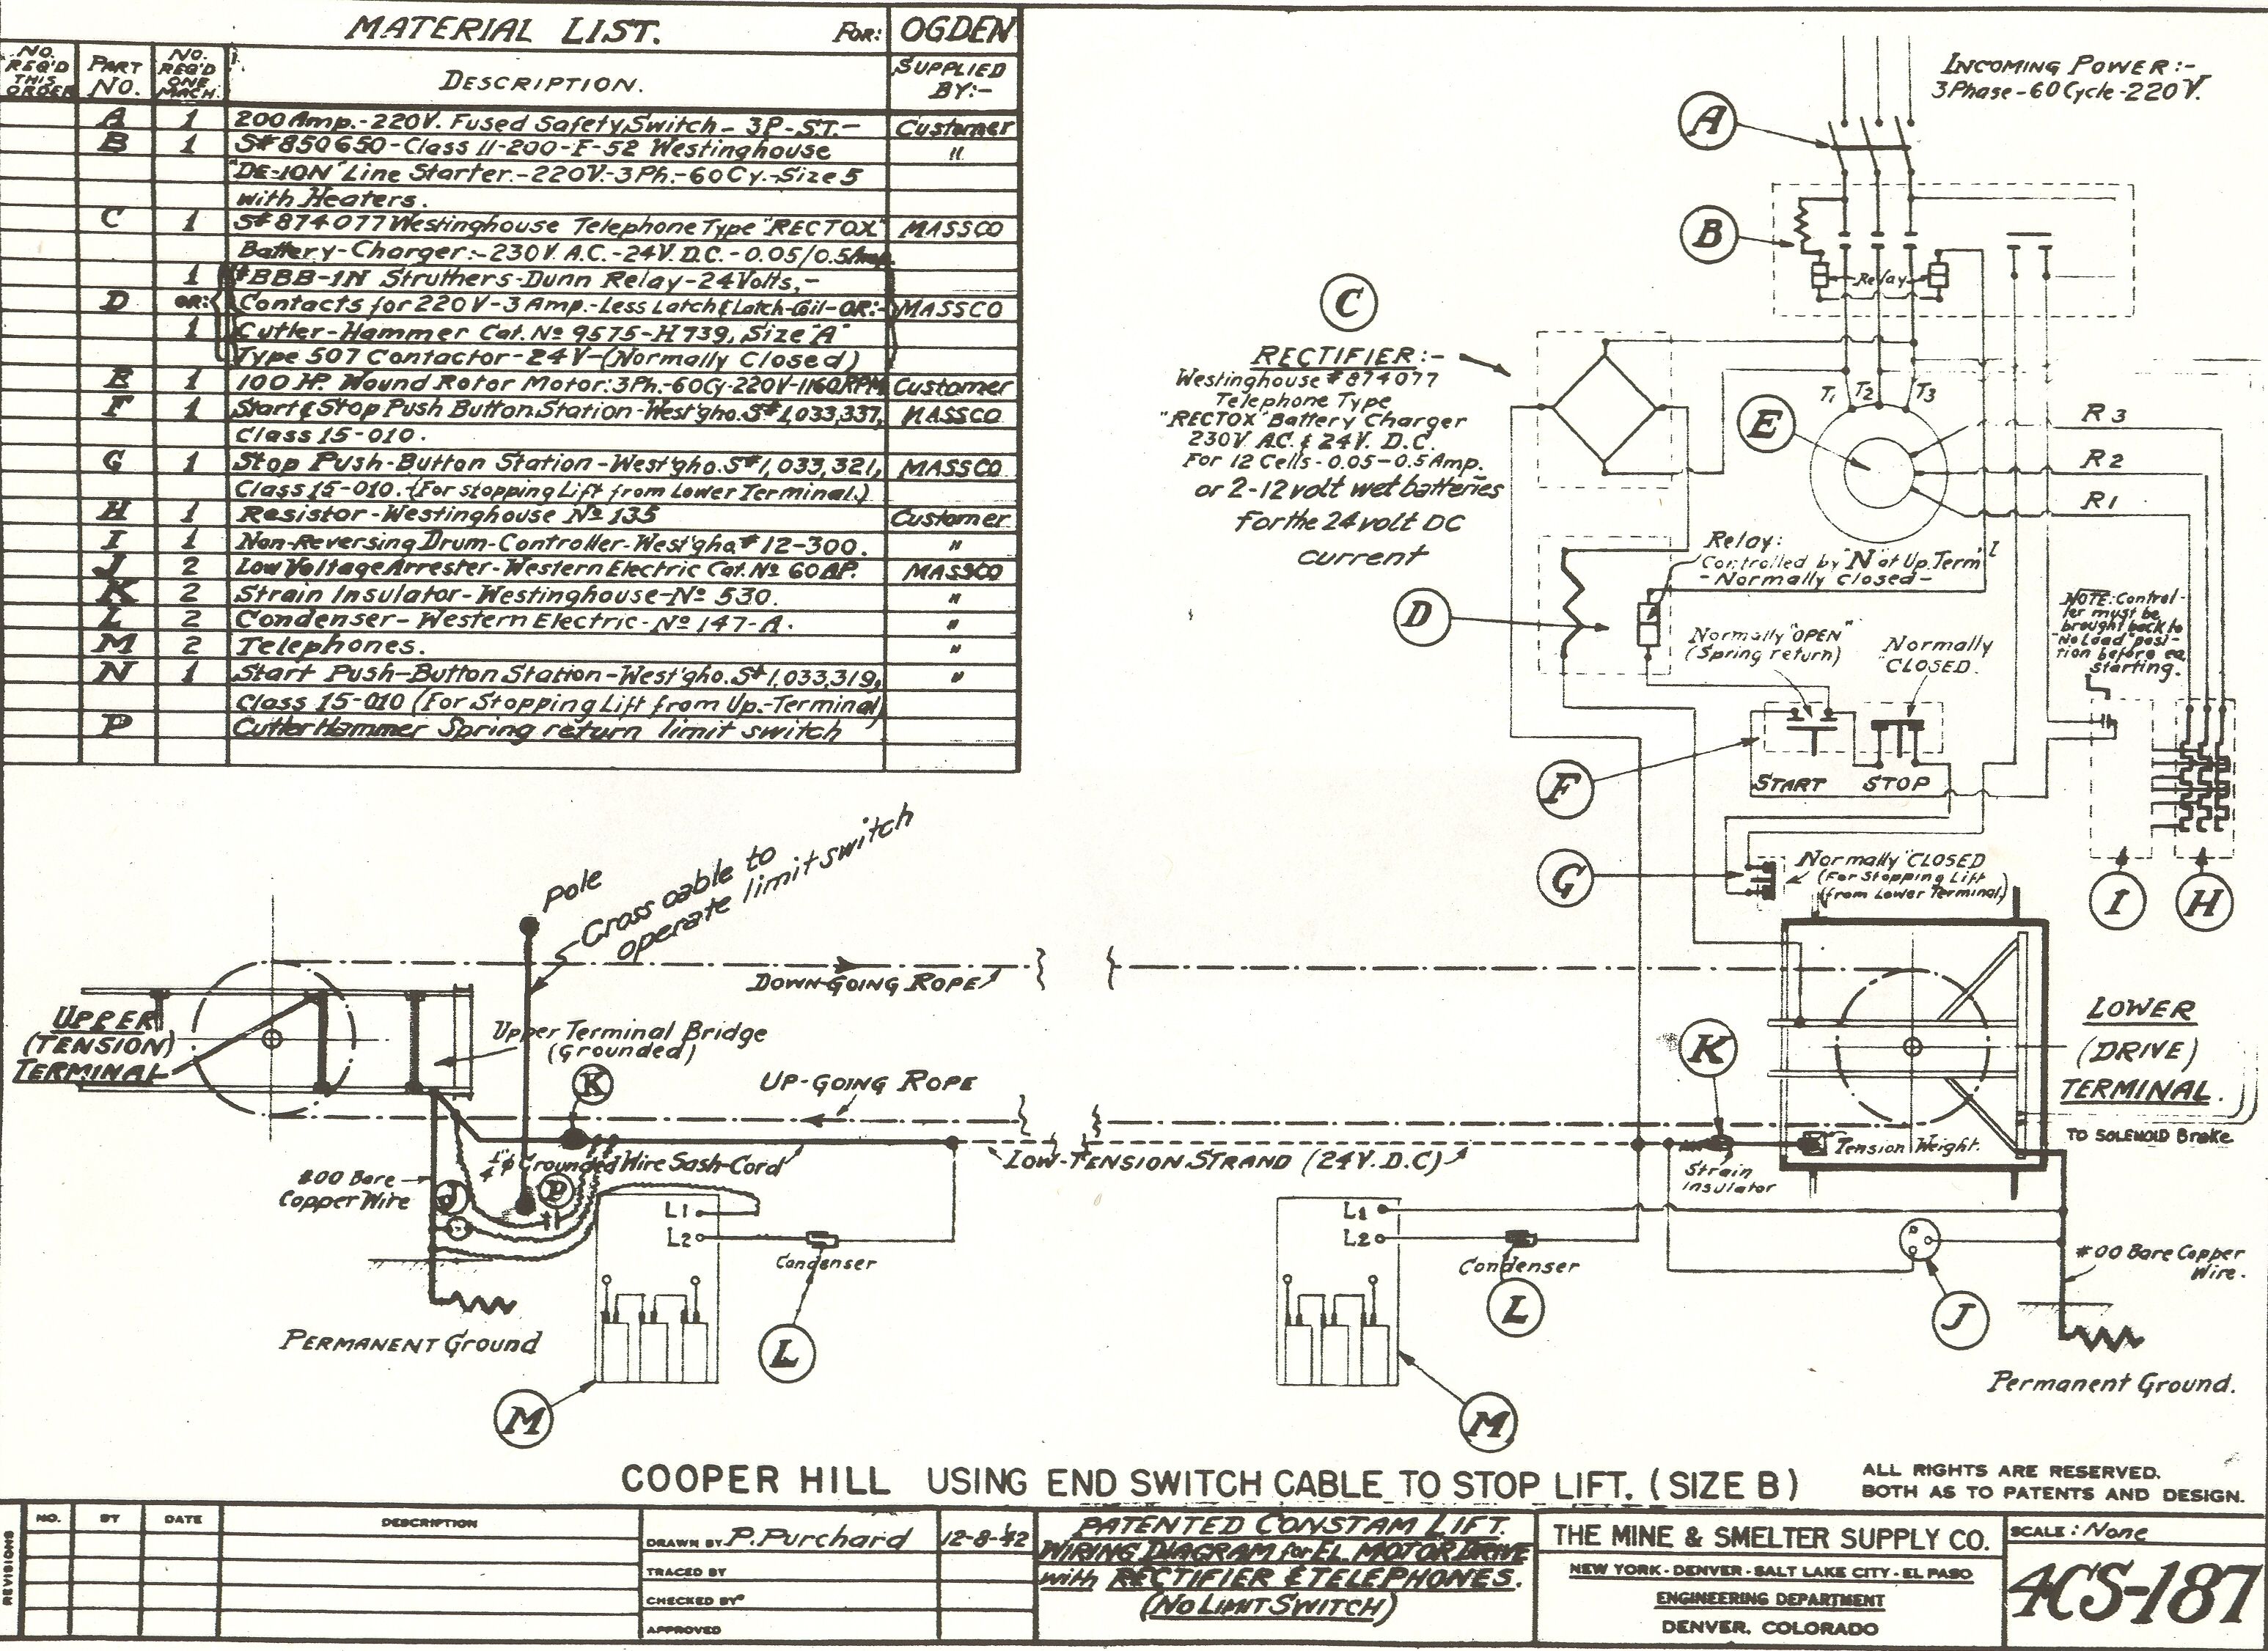 MATERIAL LIST. FOR: OGDEN
NO. REQ'D THIS ORDER PART NO. NO. REQ'D ONE MACH. DESCRIPTION. SUPPLIED BY:-
A 1 200 Amp.-220V. Fused Safety Switch - 3P-S.T.- Customer
B 1 S#850650-Class 11-200-F-52 Westinghouse "
"DE-ION" Line Starter.-220V.-3Ph.-60Cy.-Size 5
with Heaters.
C 1 S#874077 Westinghouse Telephone Type "RECTOX" MASSCO
Battery-Charger:-230V. A.C.-24V. D.C.-0.05/0.5 Amp.
1 #BBB-1N Struthers-Dunn Relay-24Volts,-
D OR: Contacts for 220V-3 Amp.-Less Latch & Latch-Coil-OR:- MASSCO
1 Cutler-Hammer Cat. No 9575-H739, Size "A"
Type 507 Contactor-24V-(Normally Closed)
E 1 100 HP. Wound Rotor Motor: 3Ph.-60Cy-220V-1160RPM Customer
F 1 Start & Stop Push Button Station-West'gho. S#1,033,337, MASSCO
Class 15-010.
G 1 Stop Push-Button Station-West'gho. S#1,033,321, MASSCO
Class 15-010. (For stopping Lift from Lower Terminal.)
H 1 Resistor-Westinghouse No 135 Customer
I 1 Non-Reversing Drum-Controller-West'gho.#12-300. "
J 2 Low Voltage Arrester-Western Electric Cat. No 60AP. MASSCO
K 2 Strain Insulator-Westinghouse-No 530. "
L 2 Condenser-Western Electric-No 147-A. "
M 2 Telephones. "
N 1 Start Push-Button Station-West'gho. S#1,033,319, "
Class 15-010 (For Stopping Lift from Up.-Terminal)
P Cutler Hammer Spring return limit switch
INCOMING POWER:-
3 Phase-60 Cycle-220V.
A
B
Relay
C
RECTIFIER:-
Westinghouse #874077
Telephone Type
"RECTOX" Battery Charger
230V A.C. & 24V. D.C.
For 12 Cells-0.05-0.5 Amp.
or 2-12 volt wet batteries
for the 24 volt DC
current
T1 T2 T3
E
R3
R2
R1
Relay:
Controlled by "N" at Up. Term'l
-Normally Closed-
D
Normally "OPEN"
(Spring return)
Normally
CLOSED.
NOTE: Control-
ler must be
brought back to
"No Load" posi-
tion before ea.
starting.
F
START STOP
G
Normally "CLOSED
(For Stopping Lift
from Lower Terminal)
I H
pole
Cross cable to
operate limit switch
DOWN-GOING ROPE
UPPER
(TENSION)
TERMINAL
Upper Terminal Bridge
(Grounded)
K
UP-GOING ROPE
1/4"φ Grounded Wire Sash-Cord
LOW-TENSION STRAND (24V. D.C.)
#00 Bare
Copper Wire
J
P
L1
L2
Condenser
PERMANENT Ground
L
M
K
LOWER
(DRIVE)
TERMINAL.
TO SOLENOID Brake
Tension Weight.
Strain
Insulator
L1
L2
Condenser
#00 Bare Copper
Wire.
L
J
M
Permanent Ground.
COOPER HILL USING END SWITCH CABLE TO STOP LIFT. (SIZE B)
ALL RIGHTS ARE RESERVED.
BOTH AS TO PATENTS AND DESIGN.
REVISIONS
NO. BY DATE DESCRIPTION
DRAWN BY P. Purchard 12-8-42
TRACED BY
CHECKED BY
APPROVED
PATENTED CONSTAM LIFT.
WIRING DIAGRAM for EL. MOTOR DRIVE
with RECTIFIER & TELEPHONES.
(NO LIMIT SWITCH)
THE MINE & SMELTER SUPPLY CO.
NEW YORK - DENVER - SALT LAKE CITY - EL PASO
ENGINEERING DEPARTMENT
DENVER, COLORADO
SCALE: None
4CS-187